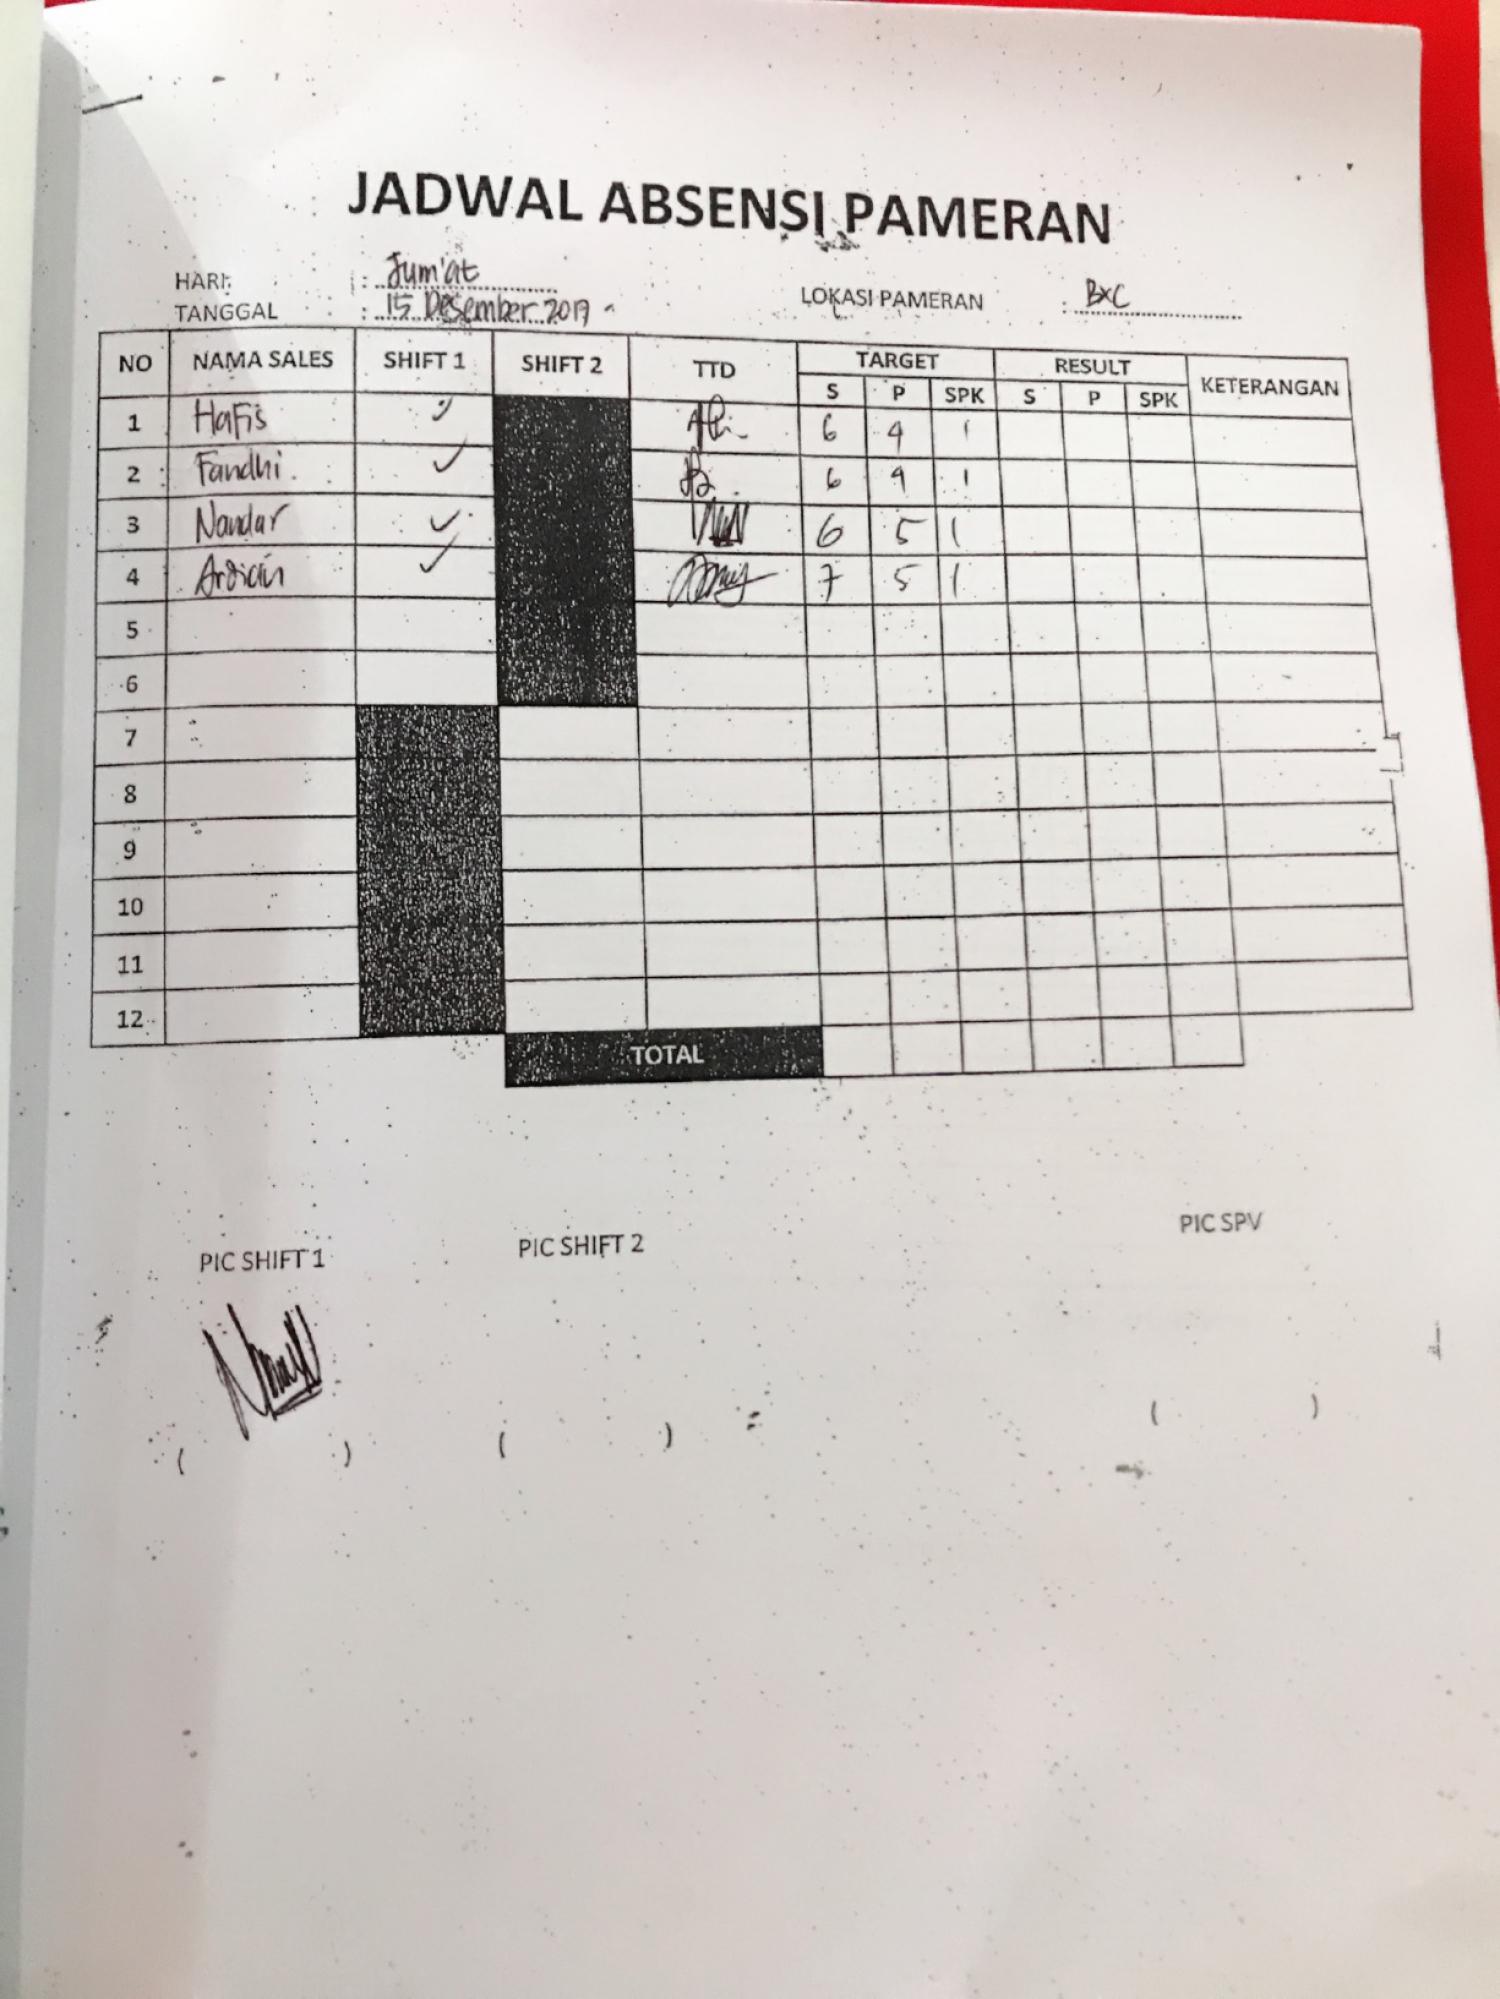 JADWAL ABSENSI PAMERAN
HARI : Jum'at
TANGGAL : 15 Desember 2017 LOKASI PAMERAN : BXC
NO NAMA SALES SHIFT 1 SHIFT 2 TTD TARGET RESULT KETERANGAN
S P SPK S P SPK
1 Hafis ✓ 6 4 1
2 Fandhi ✓ 6 4 1
3 Nandar ✓ 6 5 1
4 Ardian ✓ 7 5 1
5
6
7
8
9
10
11
12
TOTAL
PIC SHIFT 1 PIC SHIFT 2 PIC SPV
( ) ( ) ( )